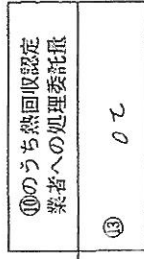 ⑩のうち熱回収認定
業者への処理委託量
⑬ 0 t